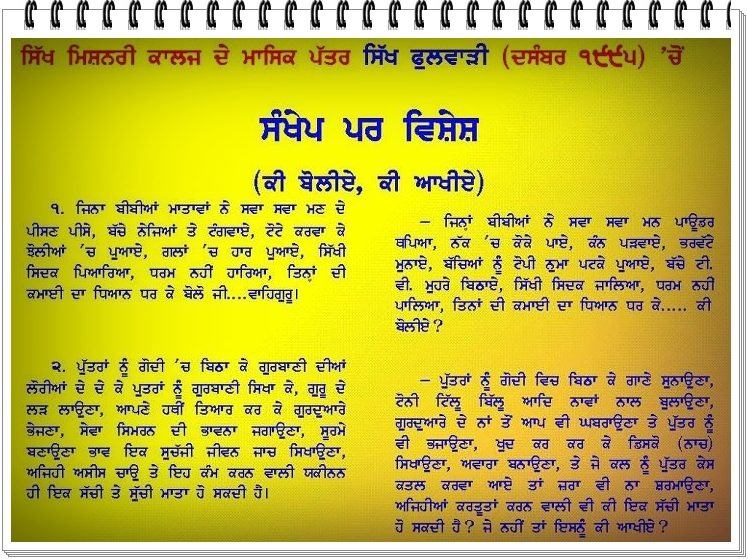 ਸਿੱਖ ਮਿਸ਼ਨਰੀ ਕਾਲਜ ਦੇ ਮਾਸਿਕ ਪੱਤਰ ਸਿੱਖ ਫੁਲਵਾੜੀ (ਦਸੰਬਰ ੧੯੯੫) 'ਚੋਂ
ਸੰਖੇਪ ਪਰ ਵਿਸ਼ੇਸ਼
(ਕੀ ਬੋਲੀਏ, ਕੀ ਆਖੀਏ)
੧. ਜਿਨਾ ਬੀਬੀਆਂ ਮਾਤਾਵਾਂ ਨੇ ਸਵਾ ਸਵਾ ਮਣ ਦੇ
ਪੀਸਣ ਪੀਸੇ, ਬੱਚੇ ਨੇਜਿਆਂ ਤੇ ਟੰਗਵਾਏ, ਟੋਟੇ ਕਰਵਾ ਕੇ
ਝੋਲੀਆਂ 'ਚ ਪੁਆਏ, ਗਲਾਂ 'ਚ ਹਾਰ ਪੁਆਏ, ਸਿੱਖੀ
ਸਿਦਕ ਪਿਆਰਿਆ, ਧਰਮ ਨਹੀਂ ਹਾਰਿਆ, ਤਿਨ੍ਹਾਂ ਦੀ
ਕਮਾਈ ਦਾ ਧਿਆਨ ਧਰ ਕੇ ਬੋਲੋ ਜੀ....ਵਾਹਿਗੁਰੂ।
੨. ਪੁੱਤਰਾਂ ਨੂੰ ਗੋਦੀ 'ਚ ਬਿਠਾ ਕੇ ਗੁਰਬਾਣੀ ਦੀਆਂ
ਲੋਰੀਆਂ ਦੇ ਦੇ ਕੇ ਪੁਤਰਾਂ ਨੂੰ ਗੁਰਬਾਣੀ ਸਿਖਾ ਕੇ, ਗੁਰੂ ਦੇ
ਲੜ ਲਾਉਣਾ, ਆਪਣੇ ਹਥੀਂ ਤਿਆਰ ਕਰ ਕੇ ਗੁਰਦੁਆਰੇ
ਭੇਜਣਾ, ਸੇਵਾ ਸਿਮਰਨ ਦੀ ਭਾਵਨਾ ਜਗਾਉਣਾ, ਸੂਰਮੇ
ਬਣਾਉਣਾ ਭਾਵ ਇਕ ਸੁਚੱਜੀ ਜੀਵਨ ਜਾਚ ਸਿਖਾਉਣਾ,
ਅਜਿਹੀ ਅਸੀਸ ਚਾਉ ਤੇ ਇਹ ਕੰਮ ਕਰਨ ਵਾਲੀ ਯਕੀਨਨ
ਹੀ ਇਕ ਸੱਚੀ ਤੇ ਸੁੱਚੀ ਮਾਤਾ ਹੋ ਸਕਦੀ ਹੈ।
– ਜਿਨ੍ਹਾਂ ਬੀਬੀਆਂ ਨੇ ਸਵਾ ਸਵਾ ਮਨ ਪਾਊਡਰ
ਥਪਿਆ, ਨੱਕ 'ਚ ਕੋਕੇ ਪਾਏ, ਕੰਨ ਪੜਵਾਏ, ਭਰਵੱਟੇ
ਮੂਨਾਏ, ਬੱਚਿਆਂ ਨੂੰ ਟੋਪੀ ਨੁਮਾ ਪਟਕੇ ਪੁਆਏ, ਬੱਚੇ ਟੀ.
ਵੀ. ਮੂਹਰੇ ਬਿਠਾਏ, ਸਿੱਖੀ ਸਿਦਕ ਜਾਲਿਆ, ਧਰਮ ਨਹੀਂ
ਪਾਲਿਆ, ਤਿਨਾਂ ਦੀ ਕਮਾਈ ਦਾ ਧਿਆਨ ਧਰ ਕੇ..... ਕੀ
ਬੋਲੀਏ?
– ਪੁੱਤਰਾਂ ਨੂੰ ਗੋਦੀ ਵਿਚ ਬਿਠਾ ਕੇ ਗਾਣੇ ਸੁਨਾਉਣਾ,
ਟੋਨੀ ਟਿੱਲੂ ਬਿੱਲੂ ਆਦਿ ਨਾਵਾਂ ਨਾਲ ਬੁਲਾਉਣਾ,
ਗੁਰਦੁਆਰੇ ਦੇ ਨਾਂ ਤੋਂ ਆਪ ਵੀ ਘਬਰਾਉਣਾ ਤੇ ਪੁੱਤਰ ਨੂੰ
ਵੀ ਭਜਾਉਣਾ, ਖੁਦ ਕਰ ਕਰ ਕੇ ਡਿਸਕੋ (ਨਾਚ)
ਸਿਖਾਉਣਾ, ਅਵਾਰਾ ਬਨਾਉਣਾ, ਤੇ ਜੇ ਕਲ ਨੂੰ ਪੁੱਤਰ ਕੇਸ
ਕਤਲ ਕਰਵਾ ਆਏ ਤਾਂ ਜ਼ਰਾ ਵੀ ਨਾ ਸ਼ਰਮਾਉਣਾ,
ਅਜਿਹੀਆਂ ਕਰਤੂਤਾਂ ਕਰਨ ਵਾਲੀ ਵੀ ਕੀ ਇਕ ਸੱਚੀ ਮਾਤਾ
ਹੋ ਸਕਦੀ ਹੈ? ਜੇ ਨਹੀਂ ਤਾਂ ਇਸਨੂੰ ਕੀ ਆਖੀਏ?